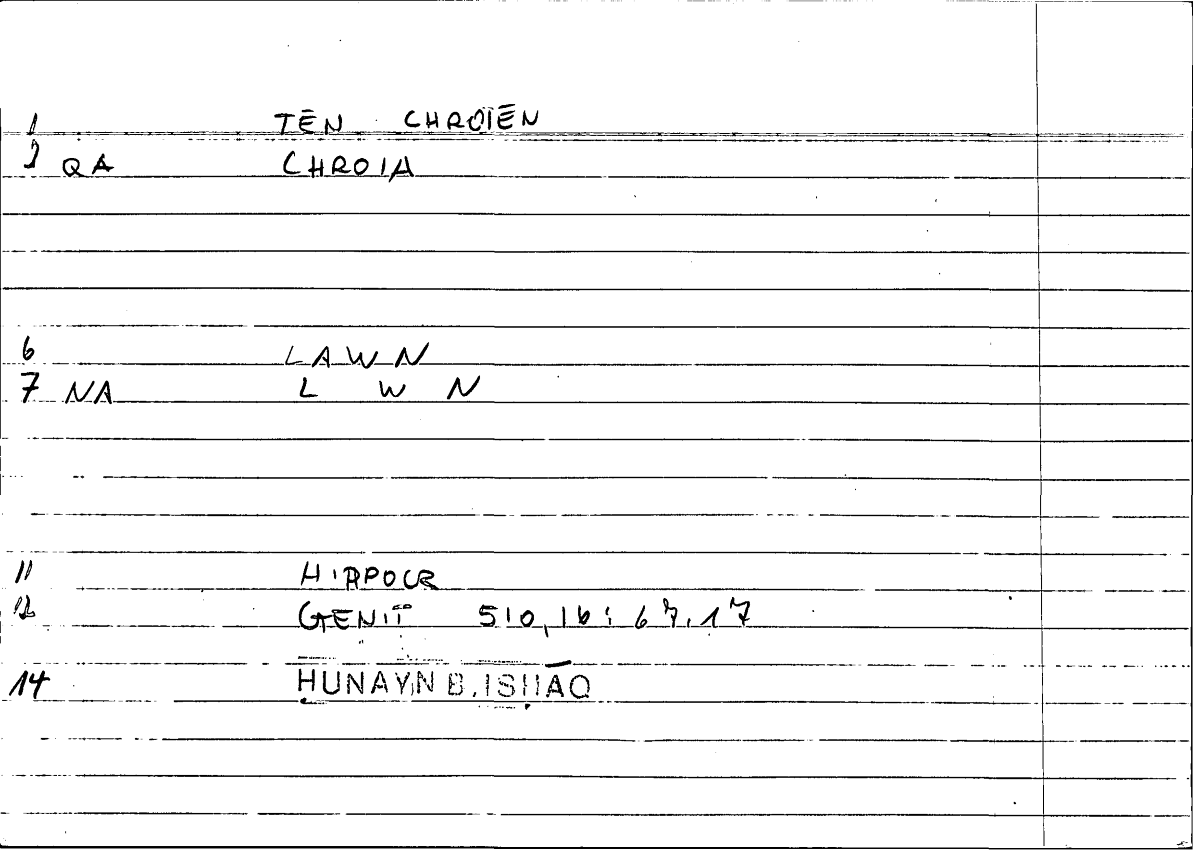 1 TĒN CHROIĒN
2 QA CHROIA
6 LAWN
7 NA L W N
11 HIPPOCR
12 GENIT 510,16 : 67,17
14 ḤUNAYN B. ISḤĀQ